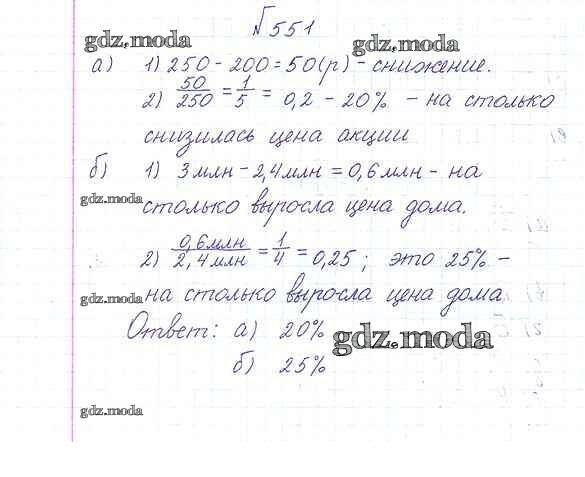 № 551
gdz.moda gdz.moda
а) 1) 250 - 200 = 50 (р) - снижение.
2) 50/250 = 1/5 = 0,2 - 20% - на столько
снизилась цена акции
б) 1) 3 млн - 2,4 млн = 0,6 млн - на
gdz.moda
столько выросла цена дома.
2) 0,6 млн/2,4 млн = 1/4 = 0,25 ; это 25% -
gdz.moda
на столько выросла цена дома.
Ответ: а) 20%
gdz.moda
б) 25%
gdz.moda